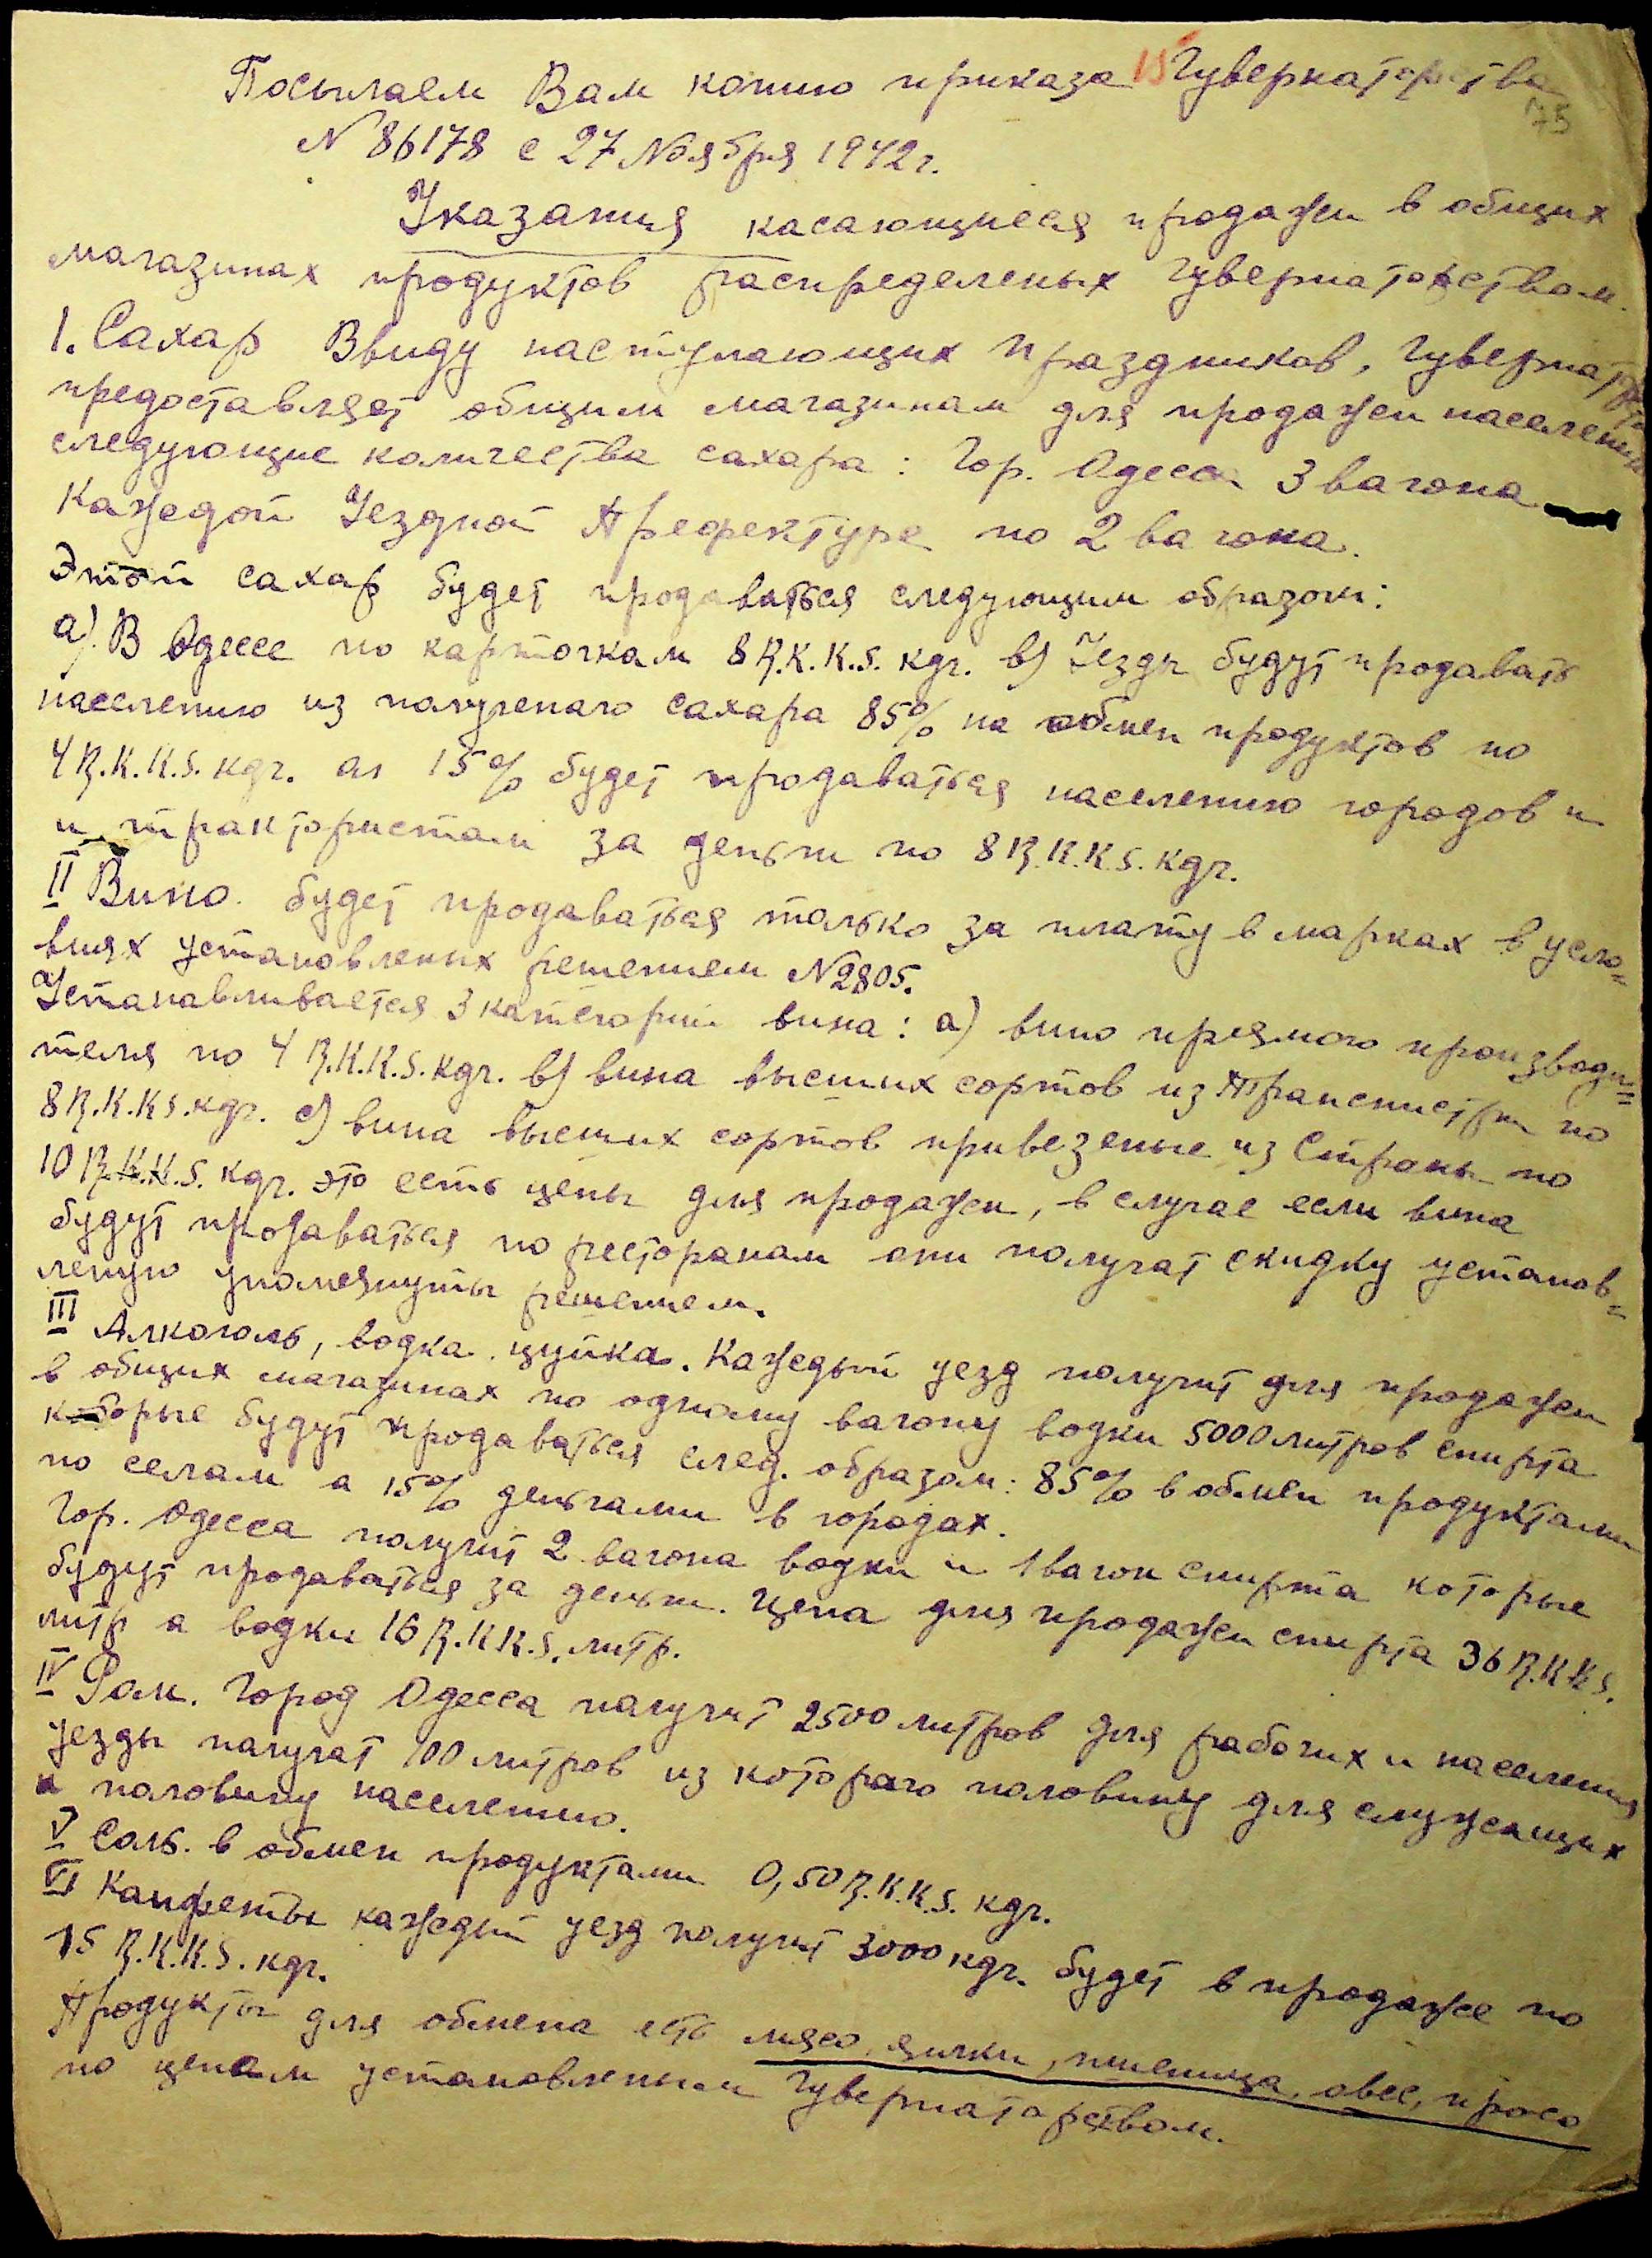 Посылаем Вам копию приказа 15 Губернаторства
75
N 86178 с 27 Ноября 1942г.
Указания касающиеся продажи в общих
магазинах продуктов распределеных Губернаторством.
1. Сахар Ввиду наступающих праздников, Губернатор
предоставляет общим магазинам для продажи населению
следующие количества сахара: Гор. Одесса 3 вагона
Каждой Уездной Префектуре по 2 вагона.
Этот сахар будет продаваться следующим образом:
а). В Одессе по карточкам 8 R.K.K.S. кгр. в) Уезды будут продавать
населению из полученаго сахара 85% на обмен продуктов по
4 R.K.K.S. кгр. а 15% будет продаваться населению городов и
и трактористам за деньги по 8 R.K.K.S. кгр.
II Вино. будет продаваться только за плату в марках в усло=
виях установленых решением N2805.
Устанавливается 3 категории вина: а) вино прямого производи=
теля по 4 R.K.K.S. кгр. в) вина высших сортов из Транснистри по
8 R.K.K.S. кгр. с) вина высших сортов привезеные из Страны по
10 R.K.K.S. кгр. это есть цены для продажи, в случае если вина
будут продаваться по ресторанам они получат скидку установ=
леную упомянуты решением.
III Алкоголь, водка. цуйка. Каждый уезд получит для продажи
в общих магазинах по одному вагону водки 5000 литров спирта
которые будут продаваться след. образом: 85% в обмен продуктами
по селам а 15% деньгами в городах.
Гор. Одесса получит 2 вагона водки и 1 вагон спирта которые
будут продаваться за деньги. Цена для продажи спирта 36 R.K.K.S.
литр а водки 16 R.K.K.S. литр.
IV Ром. Город Одесса получит 2500 литров для рабочих и населения
уезды получат 100 литров из котораго половину для служащих
и половину населению.
V Соль. в обмен продуктами 0,50 R.K.K.S. кгр.
VI Канфеты каждый уезд получит 3000 кгр. будет в продаже по
15 R.K.K.S. кгр.
Продукты для обмена есть мясо, яички, пшеница, овес, просо
по ценам установленым Губернаторством.